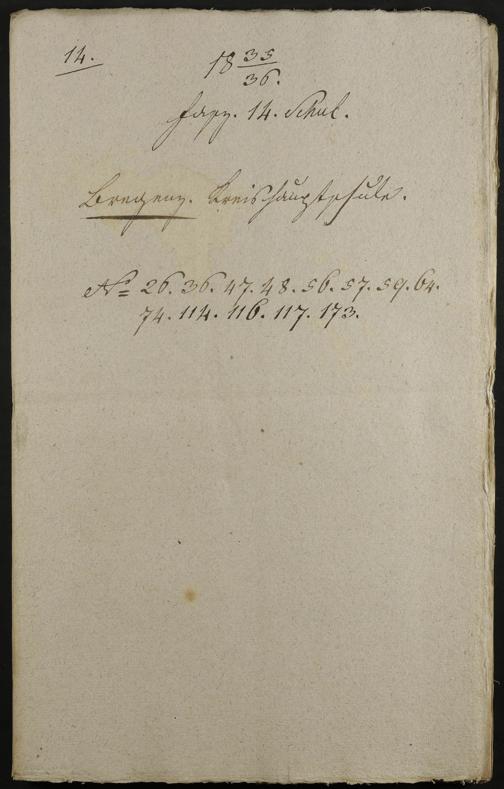 14.
18 35/36.
Fasz. 14. Schul.
Bregenz. Kreishauptschule.
No 26. 36. 47. 48. 56. 57. 59. 64.
74. 114. 116. 117. 173.